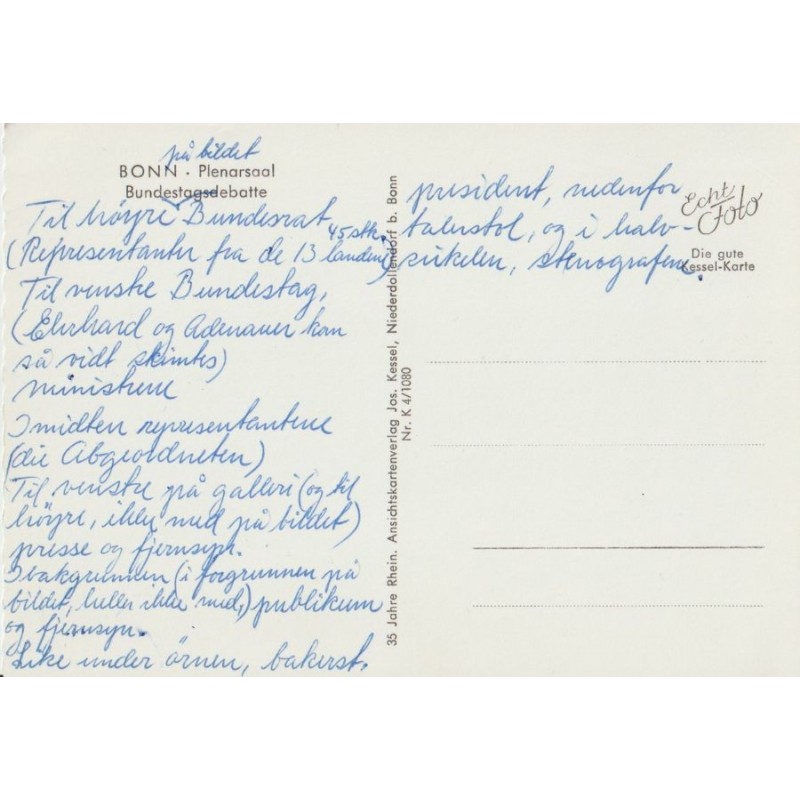 på bildet
BONN · Plenarsaal
Bundestagsdebatte
Til höyre Bundesrat
45 stk.
(Representanter fra de 13 landene)
Til venstre Bundestag,
(Ehrhard og Adenauer kan
så vidt skimtes)
ministrene
I midten representantene
(die Abgeordneten)
Til venstre på galleri (og til
höyre, ikke med på bildet)
presse og fjernsyn.
I bakgrunnen (i forgrunnen på
bildet, heller ikke med,) publikum
og fjernsyn.
Like under örnen, bakerst,
president, nedenfor
talerstol, og i halv-
sirkelen, stenografene.
Echt
Foto
Die gute
Kessel-Karte
35 Jahre Rhein. Ansichtskartenverlag Jos. Kessel, Niederdollendorf b. Bonn
Nr. K 4/1080